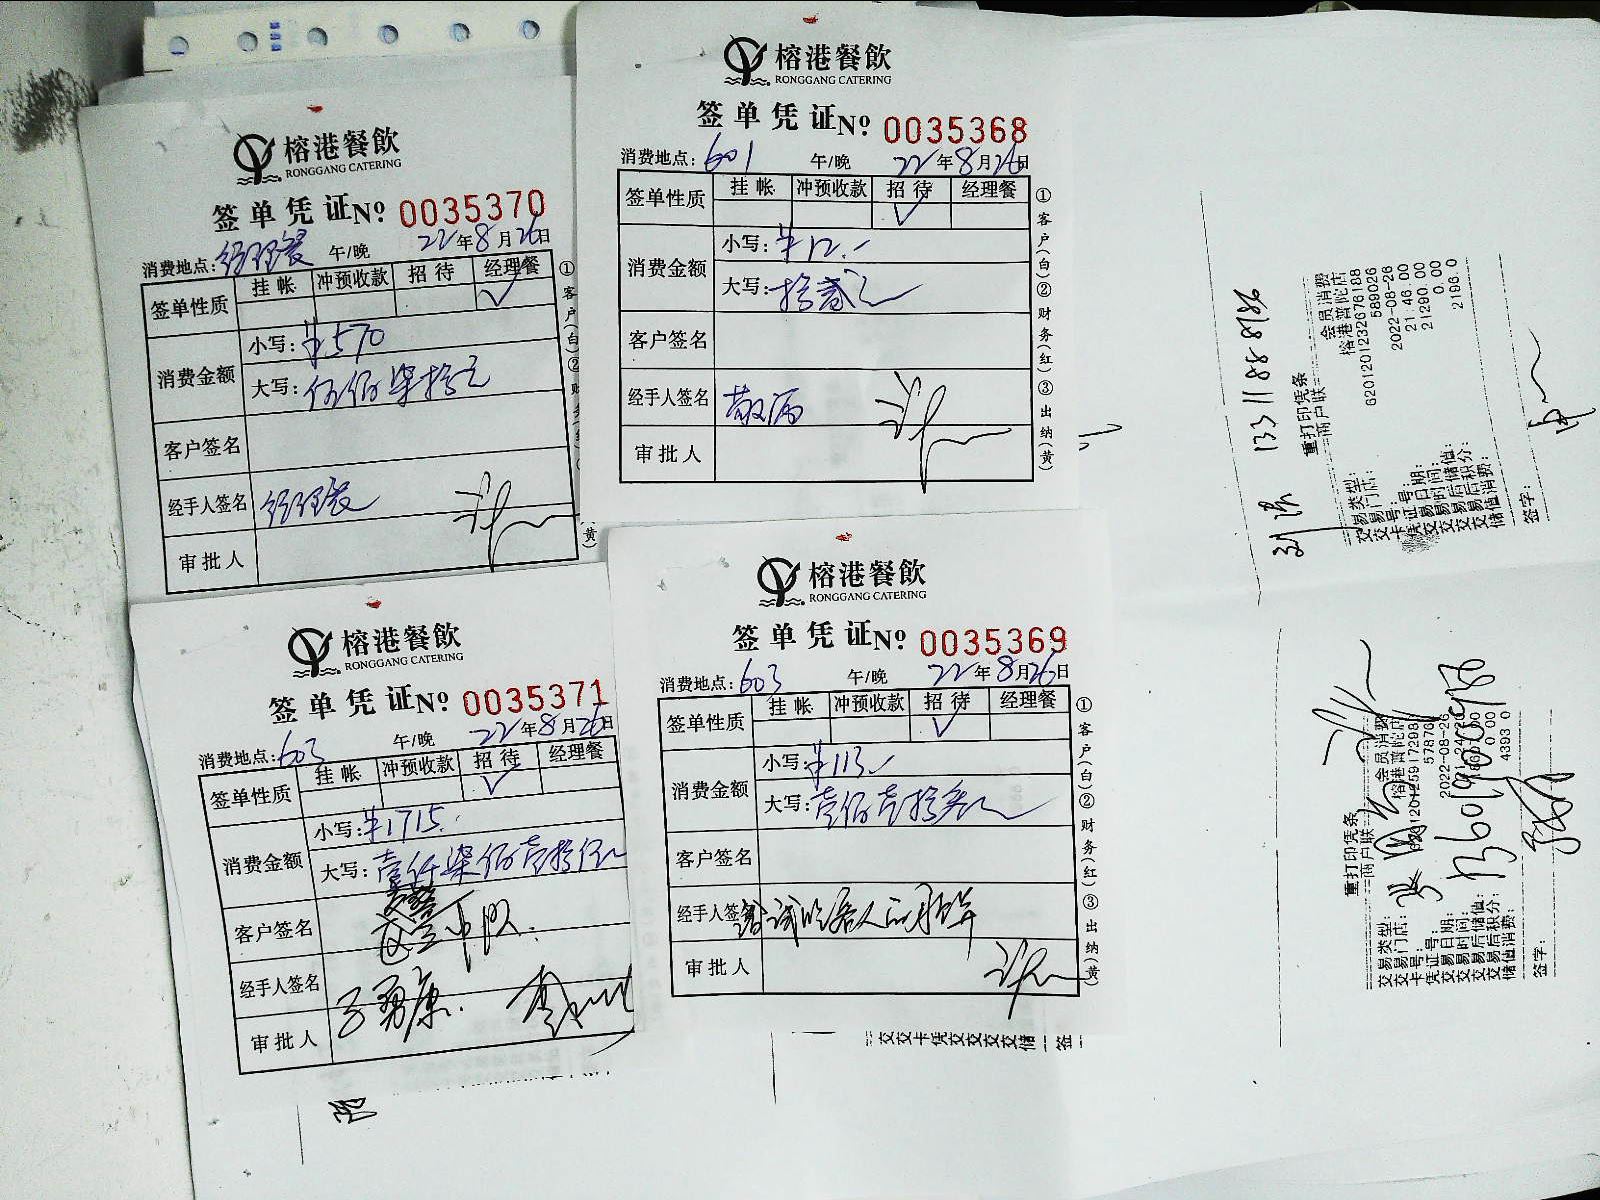 榕港餐飲
RONGGANG CATERING
签单凭证№ 0035370
消费地点:经理餐 午/晚 22年8月26日
签单性质 挂帐 冲预收款 招待 经理餐
✓
消费金额
小写:¥570
大写:伍佰柒拾元
客户签名
经手人签名 经理餐
审批人
①客户(白)②财务(红)
(黄)
榕港餐飲
RONGGANG CATERING
签单凭证№ 0035368
消费地点:601 午/晚 22年8月26日
签单性质 挂帐 冲预收款 招待 经理餐
✓
消费金额
小写:¥12.-
大写:拾贰元
客户签名
经手人签名
审批人
①客户(白)②财务(红)③出纳(黄)
榕港餐飲
RONGGANG CATERING
签单凭证№ 0035371
消费地点:603 午/晚 22年8月26日
签单性质 挂帐 冲预收款 招待 经理餐
✓
消费金额
小写:¥1715.-
大写:壹仟柒佰壹拾伍元
客户签名 中队.
经手人签名
审批人
榕港餐飲
RONGGANG CATERING
签单凭证№ 0035369
消费地点:603 午/晚 22年8月26日
签单性质 挂帐 冲预收款 招待 经理餐
✓
消费金额
小写:¥113.-
大写:壹佰壹拾叁元
客户签名
经手人签名
审批人
①客户(白)②财务(红)③出纳(黄)
13311888786
重打印凭条
商户联
交易类型: 会员消费
交易门店: 榕港普陀店
卡号: 6201201232676188
凭证号: 589026
交易日期: 2022-08-26
交易时间: 21:46.00
交易后储值: 21290.00
交易后积分: 0.00
储值消费: 2196.0
签字:
重打印凭条
商户联
交易类型: 会员消费
交易门店: 榕港普陀店
卡号:
凭证号: 578768
交易日期: 2022-08-26
交易时间:
交易后储值:
交易后积分: 0.00
储值消费: 4393.0
签字: